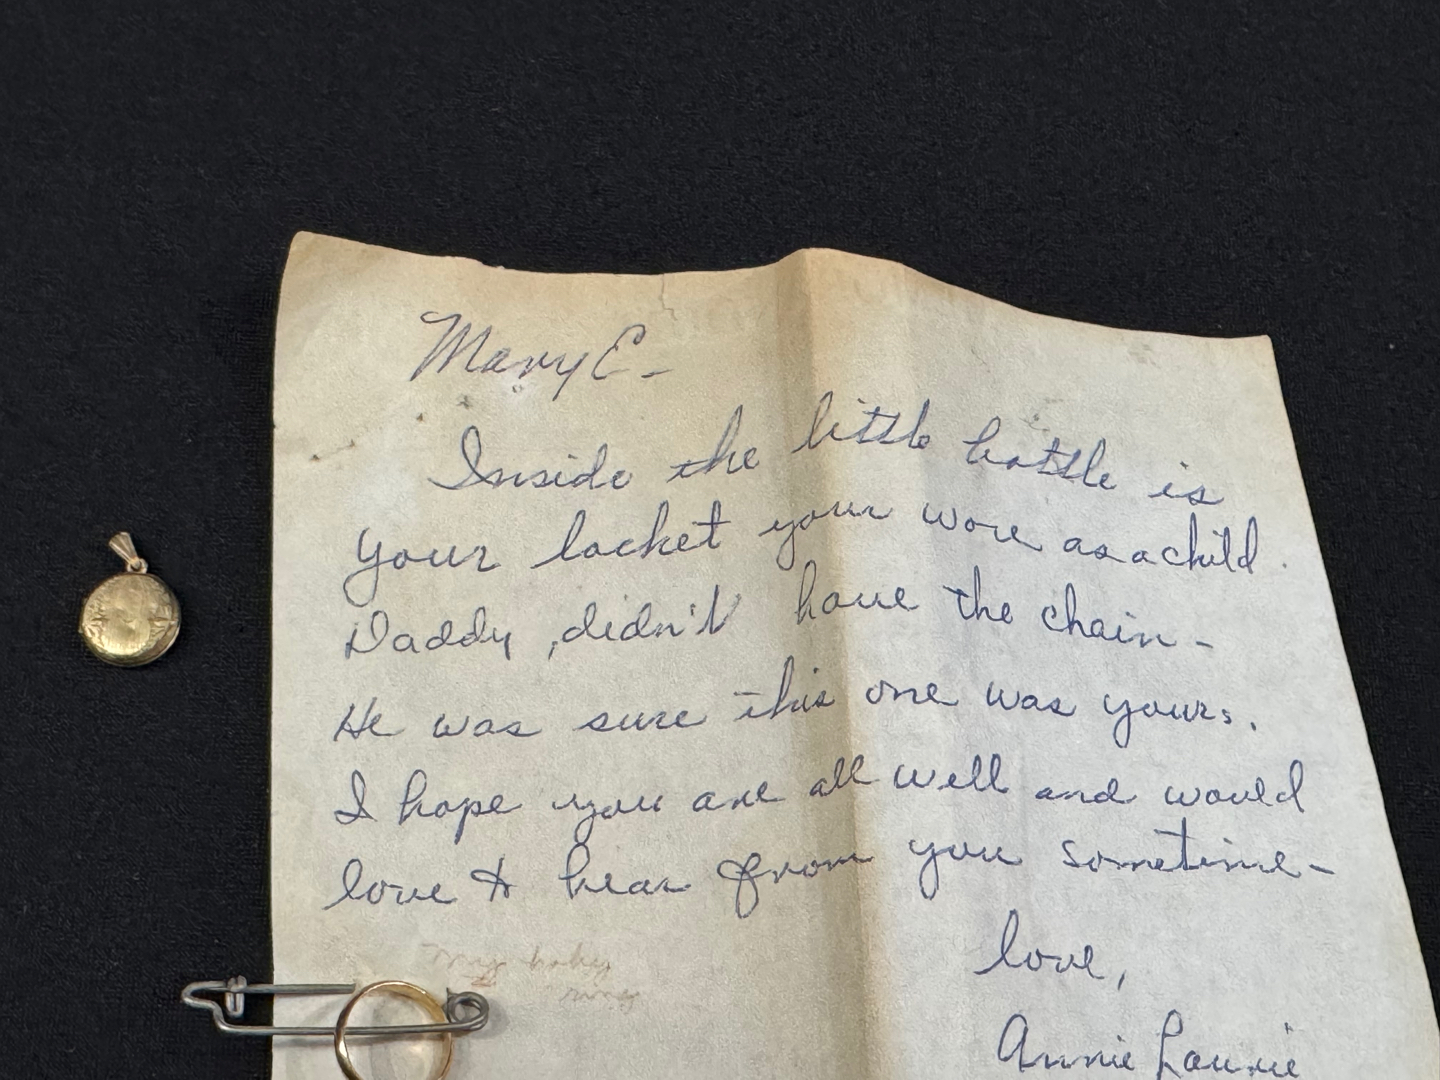 Mary E-
Inside the little bottle is
your locket your wore as a child.
Daddy, didn't have the chain-
He was sure this one was yours.
I hope you are all well and would
love to hear from you sometime-
love,
Annie Laurie
My baby
ring